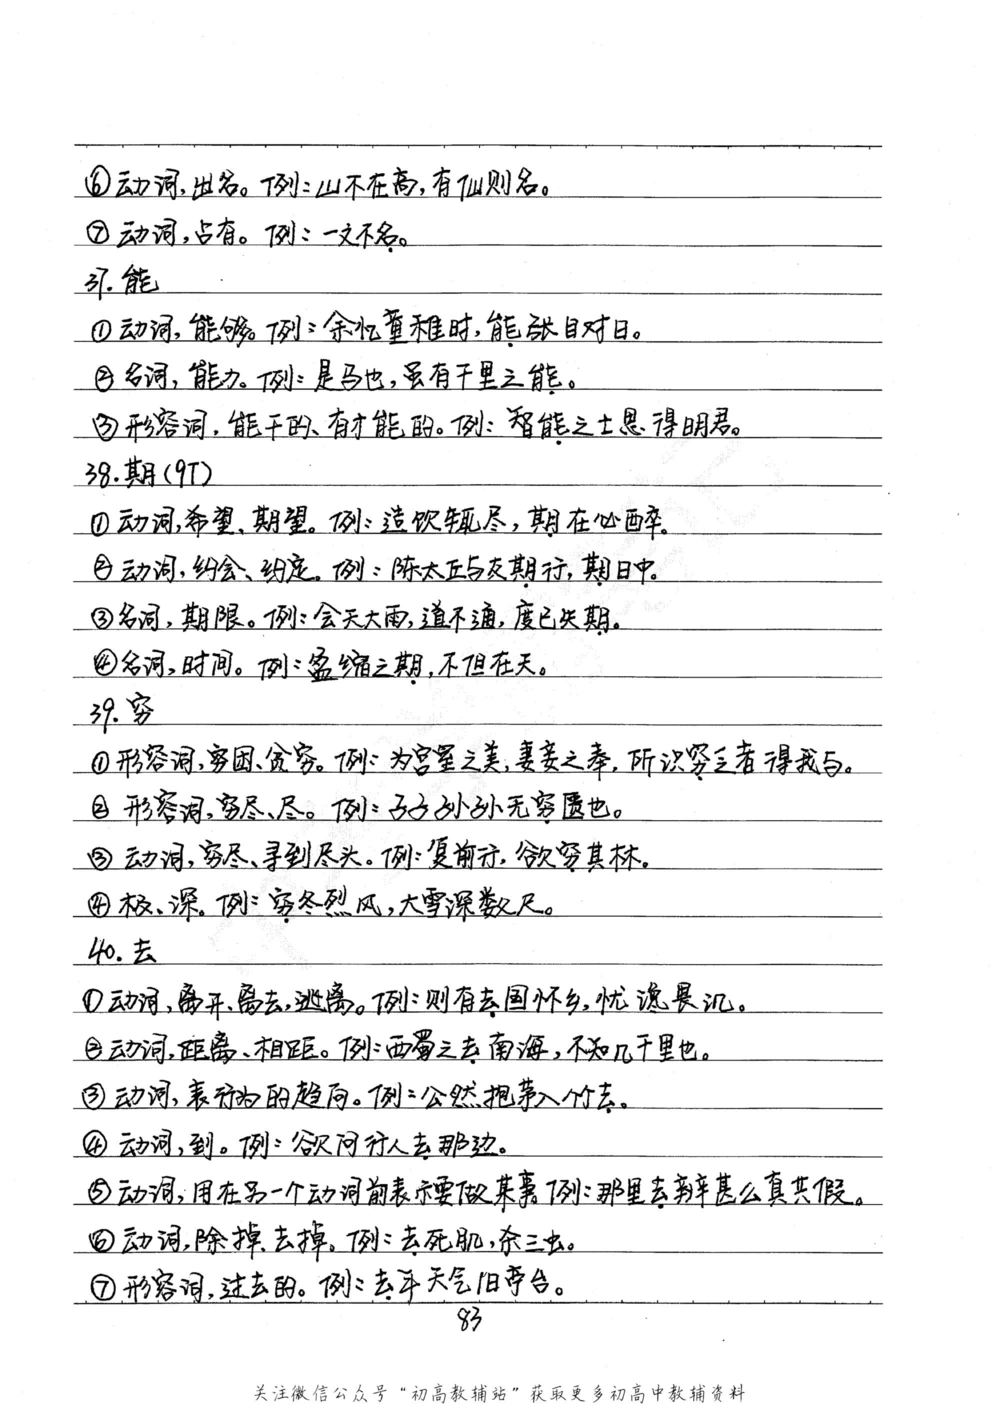 ⑥动词,出名。例:山不在高,有仙则名。
⑦动词,占有。例:一文不名。
37.能
①动词,能够。例:余忆童稚时,能张目对日。
②名词,能力。例:是马也,虽有千里之能。
③形容词,能干的、有才能的。例:智能之士思得明君。
38.期(9下)
①动词,希望、期望。例:造饮辄尽,期在必醉。
②动词,约会、约定。例:陈太丘与友期行,期日中。
③名词,期限。例:会天大雨,道不通,度已失期。
④名词,时间。例:盈缩之期,不但在天。
39.穷
①形容词,穷困、贫穷。例:为宫室之美,妻妾之奉,所识穷乏者得我与。
②形容词,穷尽、尽。例:子子孙孙无穷匮也。
③动词,穷尽、寻到尽头。例:复前行,欲穷其林。
④极、深。例:穷冬烈风,大雪深数尺。
40.去
①动词,离开、离去,逃离。例:则有去国怀乡,忧谗畏讥。
②动词,距离、相距。例:西蜀之去南海,不知几千里也。
③动词,表行为的趋向。例:公然抱茅入竹去。
④动词,到。例:欲问行人去那边。
⑤动词,用在另一个动词前表示要做某事。例:那里去辨甚么真共假。
⑥动词,除掉、去掉。例:去死肌,杀三虫。
⑦形容词,过去的。例:去年天气旧亭台。
83
关注微信公众号“初高教辅站”获取更多初高中教辅资料